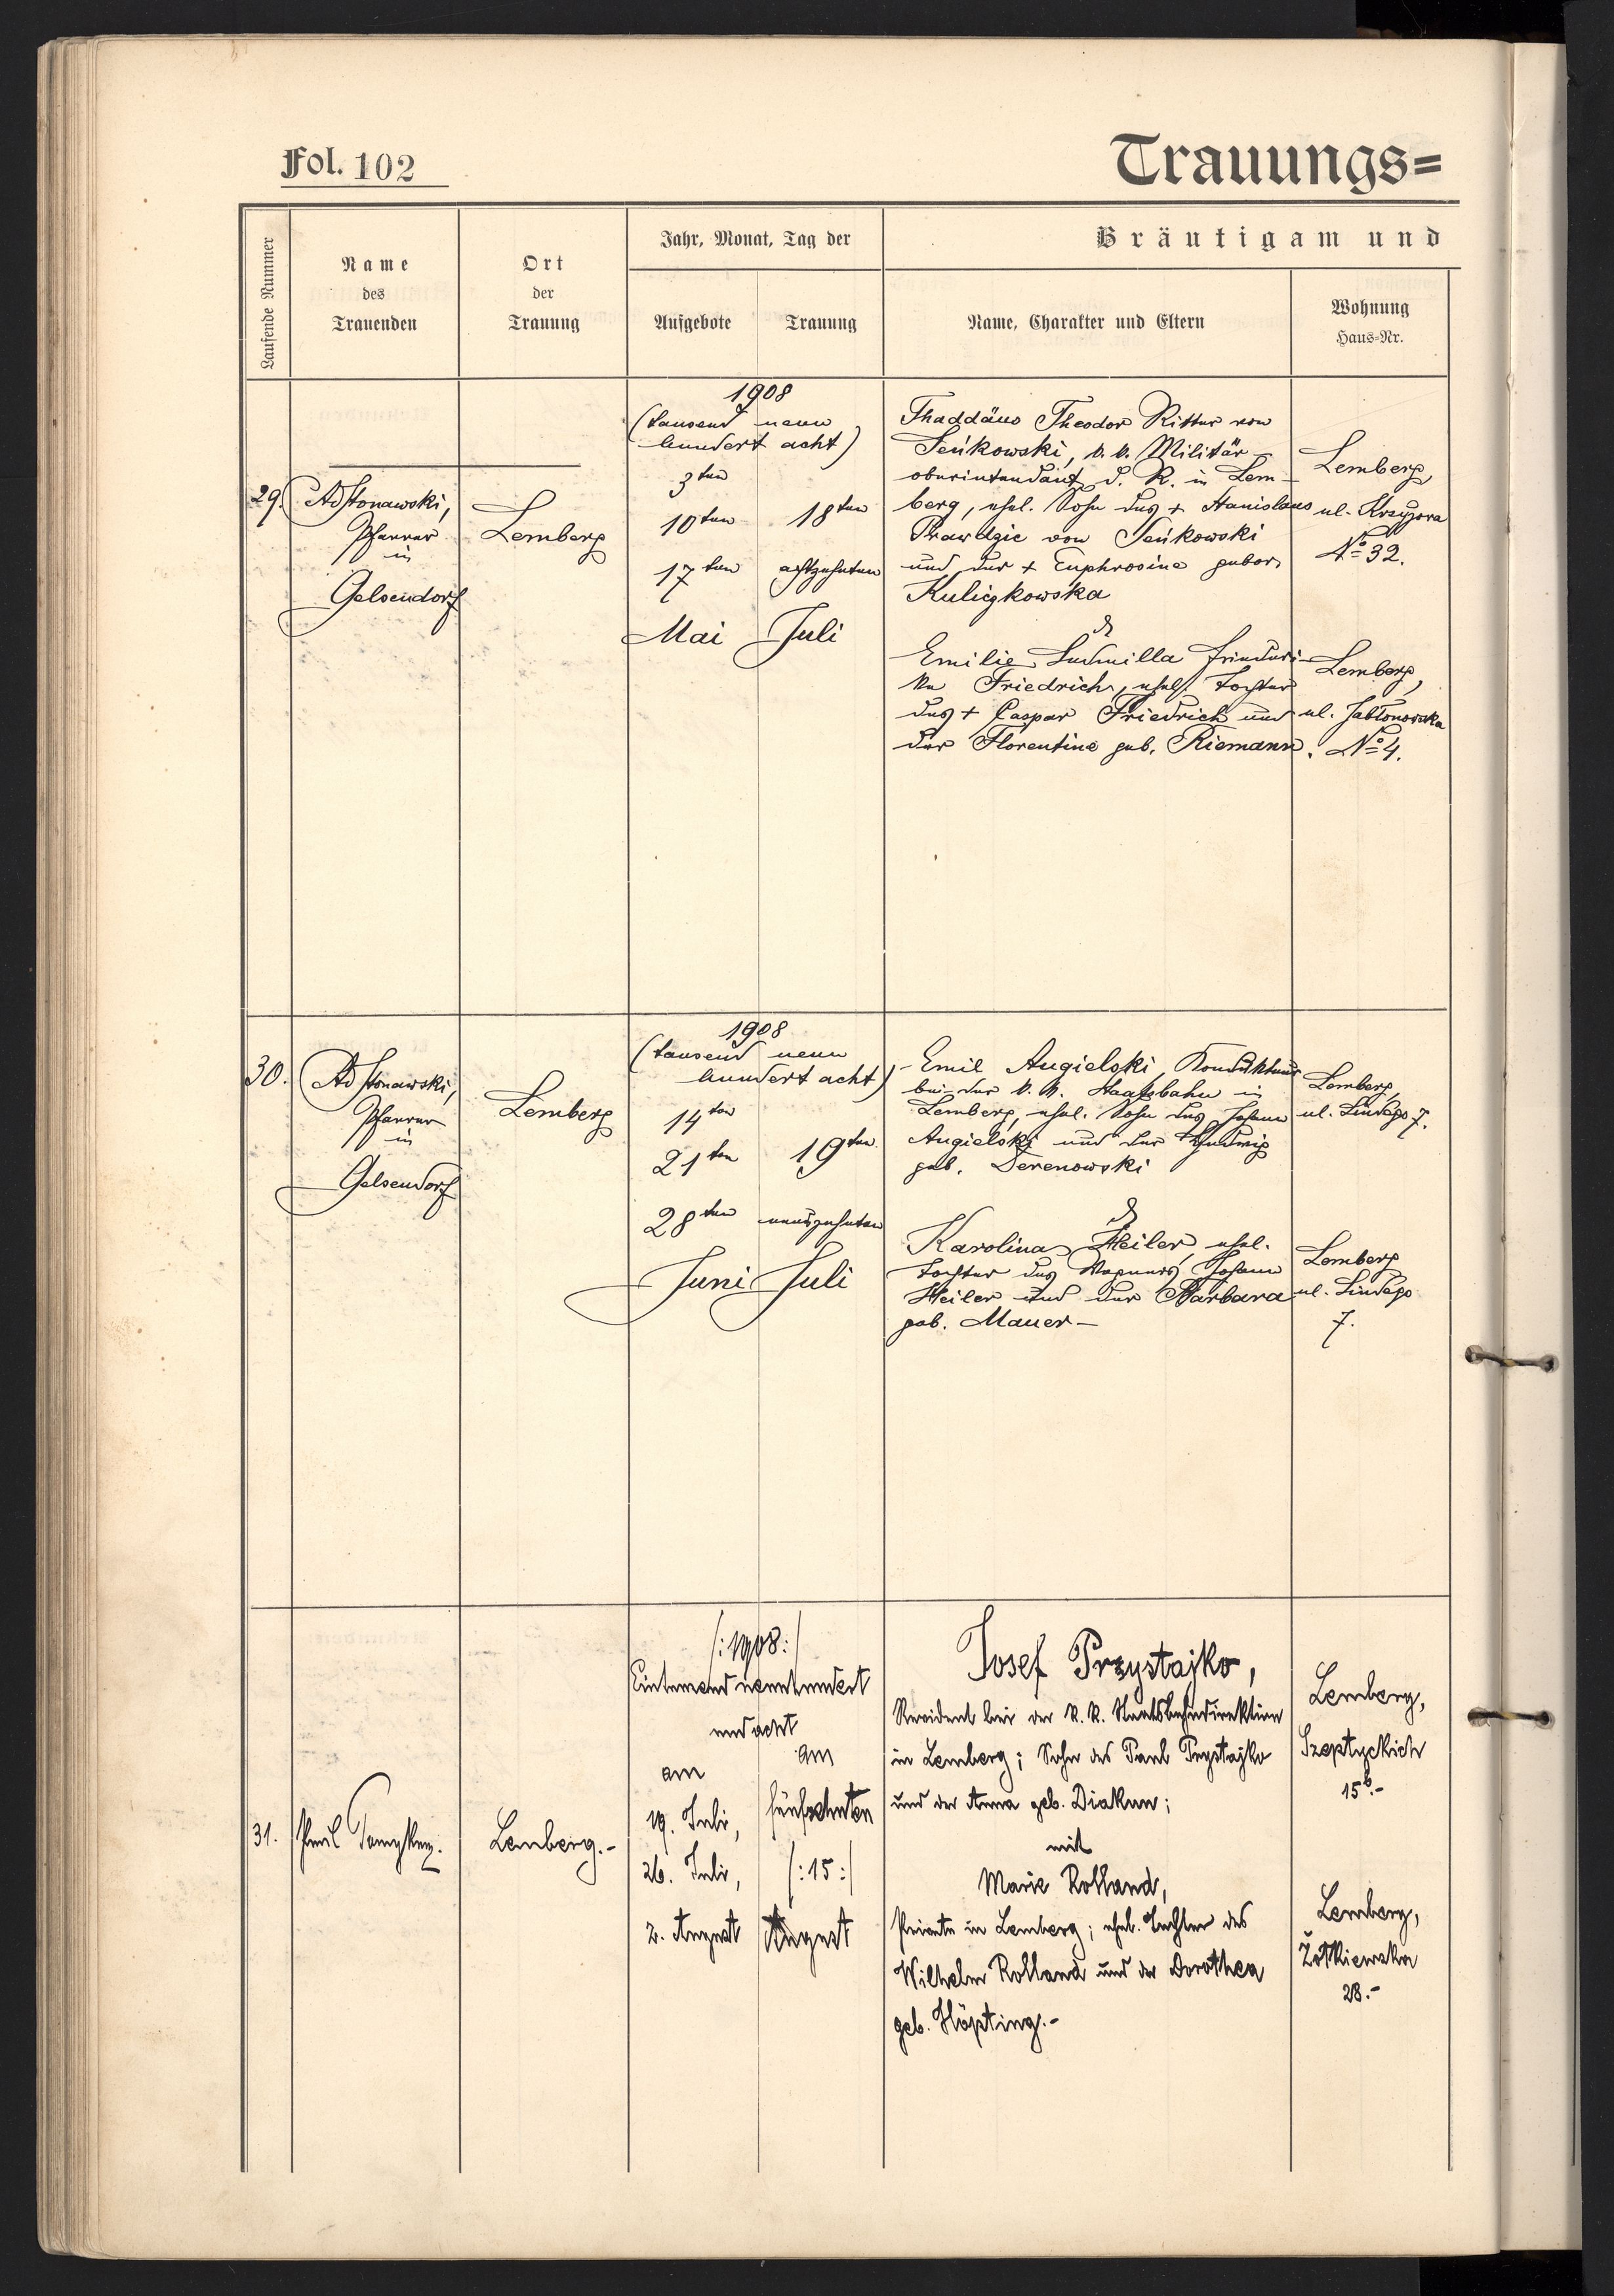 Fol. 102
Trauungs=
Laufende Nummer
Name
des
Trauenden
Ort
der
Trauung
Jahr, Monat, Tag der
Aufgebote
Trauung
Bräutigam und
Name, Charakter und Eltern
Wohnung
Haus=Nr.
29.
Ad Stonawski,
Pfarrer
in
Gelsendorf
Lemberg
1908
(tausend neun
hundert acht)
3ten
10ten
17ten
Mai
18ten
achtzehnten
Juli
Thaddäus Theodor Ritter von
Seńkowski, k. k. Militär-
oberintendant d. R. in Lem-
berg, ehel. Sohn des + Stanislaus
Prawdzic von Seńkowski
und der + Euphrosine gebor.
Kuliczkowska
&
Emilie Ludmilla Friederi-
ke Friedrich, ehel. Tochter
des + Caspar Friedrich und
der Florentine geb. Riemann.
Lemberg,
ul. Krzyżowa
No 32.
Lemberg,
ul. Jabłonowska
No 4.
30.
Ad Stonawski,
Pfarrer
in
Gelsendorf
Lemberg
1908
(tausend neun
hundert acht)
14ten
21ten
28ten
Juni
19ten
neunzehnten
Juli
Emil Angielski, Kondukteur
bei der k. k. Staatsbahn in
Lemberg, ehel. Sohn des Johann
Angielski und der Hedwig
geb. Derenowski
&
Karolina Heiler, ehel.
Tochter des Wagners Johann
Heiler und der Barbara
geb. Mauer-
Lemberg,
ul. Lindego 7.
Lemberg
ul. Lindego
7.
31.
Lemberg.-
/:1908:/
Eintausend neunhundert
und acht
am
19. Juli,
26. Juli,
2. August
am
fünfzehnten
/:15:/
August
Josef Przystajko,
Revident bei der k. k. Staatsbahndirektion
in Lemberg; Sohn des Paul Prystajko
und der Anna geb. Diakun;
mit
Marie Rolland,
Private in Lemberg; ehel. Tochter des
Wilhelm Rolland und der Dorothea
geb. Höpting.-
Lemberg,
Szeptyckich
15b.-
Lemberg,
Żółkiewska
28.-